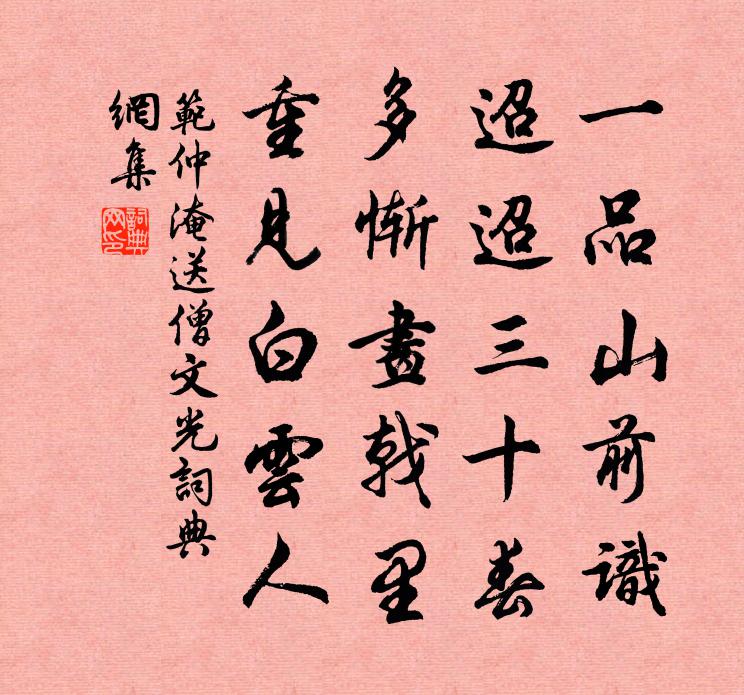 一品山前識
迢迢三十春
多慚畫戟里
重見白雲人
範仲淹送僧文光詞典
網集
詞典
网印